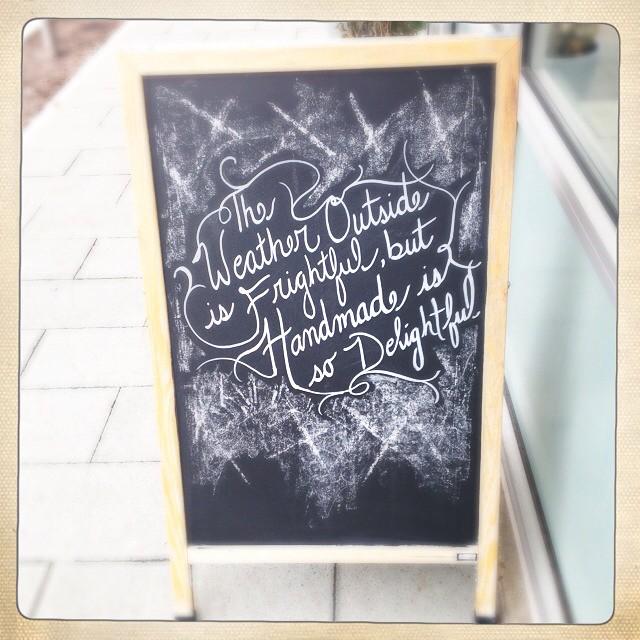 The
Weather Outside
is Frightful, but
Handmade is
so Delightful